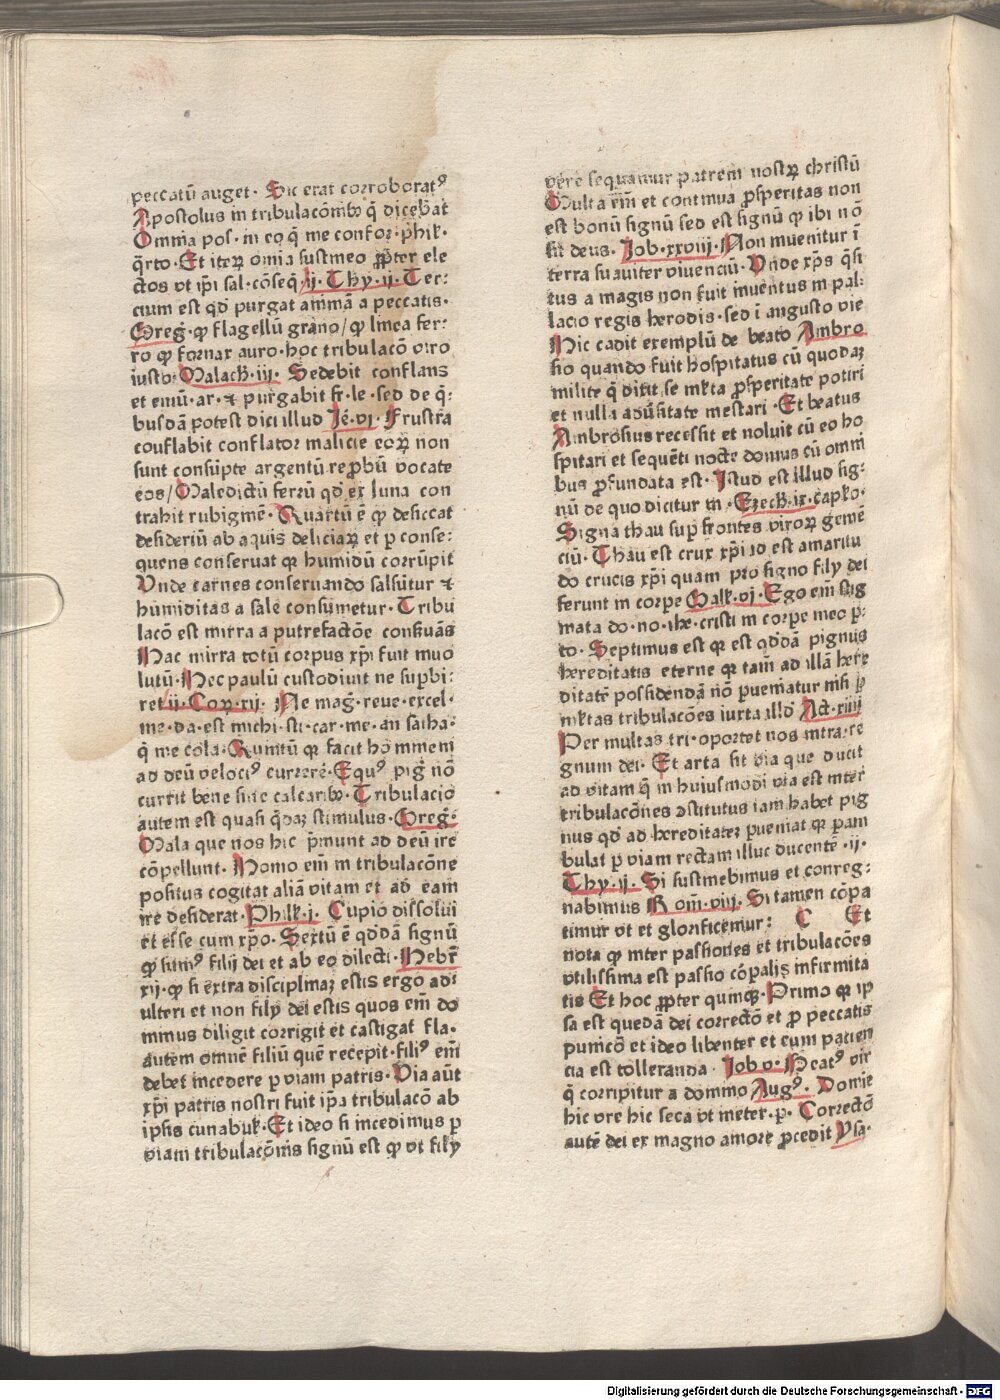 peccatū auget· Sic erat corroboratꝰ
Apostolus in tribulacōnibꝫ q̄ dicebat
Omnia pos· in eo q̄ me confor· phil·
q̄rto· Et iteꝝ omīa sustineo ꝓpter ele
ctos vt ip̄i sal· cōseq̄ ij· Thy· ij· Ter:
cium est qd̓ purgat animā a peccatis·
Greg· ꝙ flagellū grano/ ꝙ linea fer:
ro ꝙ fornax auro· hoc tribulacō viro
iusto· Malach· iij· Sedebit conflans
et emū· ar· ⁊ purgabit fi· le· sed de q̄:
busdā potest dici illud Je͂· vj· Frustra
conflabit conflator malicie eoꝝ non
sunt consūpte argentū reꝓbū vocate
eos/ Maledictū ferrū qd̓ ex luna con
trahit rubiginē· Quartū ē ꝙ desiccat
desideriū ab aquis deliciaꝝ et ꝑ conse:
quens conseruat qꝛ humidū corrūpit
Vnde carnes conseruando salsūtur ⁊
humiditas a sale consūmetur· Tribu
lacō est mirra a putrefactōe conẜuās
Hac mirra totū corpus xp̄i fuit inuo
lutū· Hec paulū custodiuit ne suꝑbi:
ret ij· Coꝝ· xij· Ne mag̓· reue· excel·
me· da· est michi· sti· car· me· an satha·
q̄ me cola· Quintū qꝛ facit hominem
ad deū velociꝰ currere· Equꝰ pig̓ nō
currit bene sine calcaribꝫ· Tribulacio
autem est quasi q̄daꝫ stimulus· Greg·
Mala que nos hic p̄munt ad deū ire
cōpellunt· Homo em̄ in tribulacōne
positus cogitat aliā vitam et ad eam
ire desiderat· Philꝭ· j· Cupio dissolui
et esse cum xp̄o· Sextū ē qd̓dā signū
ꝙ simꝰ filij dei et ab eo dilecti· Hebr̄
xij· ꝙ si extra disciplinaꝫ estis ergo ad:
ulteri et non filij dei estis quos em̄ do
minus diligit corrigit et castigat fla·
autem omnē filiū quē recepit· filiꝰ em̄
debet incedere ꝑ viam patris· Via aūt
xp̄i patris nostri fuit ip̄a tribulacō ab
ipsis cunabulꝭ· Et ideo si incedimus ꝑ
viam tribulacōnis signū est ꝙ vt filij
vere sequamur patrem nostꝝ christū
Multa em̄ et continua ꝓsperitas non
est bonū signū sed est signū ꝙ ibi nō
sit deus· Job· xxviij· Non inuenitur ī
terra suauiter viuenciū· Vnde xp̄s q̄si
tus a magis non fuit inuentus in pal:
lacio regis herodis· sed ī angusto vie
Hic cadit exemplū de beato Ambro
sio quando fuit hospitatus cū quodaꝫ
milite q̄ dixit se mlta ꝓsperitate potiri
et nulla aduẜitate mestari· Et beatus
Ambrosius recessit et noluit cū eo ho
spitari et sequēti nocte domus cū omni
bus ꝓfundata est· Istud est illud sig:
nū de quo dicitur in· Ezech· ix· capło·
Signa thau suꝑ frontes viroꝝ gemē
ciū· Thau est crux xp̄i id est amaritu
do crucis xp̄i quam pro signo filij dei
ferunt in corꝑe Galꝭ· vj· Ego em̄ stig
mata do· no· ihe· cristi in corꝑe meo ꝑ·
to· Septimus est qꝛ est qd̓dā pignus
hereditatis eterne qꝛ tam̄ ad illā here
ditatē possidendā nō ꝑueniatur nisi ꝑ
mltas tribulacōes iuxta illd̓ Act· xiiij
Per multas tri· oportet nos intra· re
gnum dei· Et arta sit via que ducit
ad vitam q̄ in huiusmodi via est inter
tribulacōnes ꝯstitutus iam habet pig
nus qd̓ ad hereditateꝫ ꝑueniat qꝛ ꝑam
bulat ꝑ viam rectam illuc ducente· ij·
Thy· ij· Si sustinebimus et conreg:
nabimus Rom· viij· Si tamen cōpa
timur vt et glorificemur: C Et
nota ꝙ inter passiones et tribulacōes
vtilissima est passio cōꝑalis infirmita
tis Et hoc ꝓpter quinqꝫ· Primo qꝛ ip
sa est quedā dei correctō et ꝓ peccatis
punicō et ideo libenter et cum pacien
cia est tolleranda· Job v· Beatꝰ vir
q̄ corripitur a domino Augꝰ· Domine
hic vre hic seca vt in eter· ꝑ· Correctō
autē dei ex magno amore ꝓcedit Ysa·
Digitalisierung gefördert durch die Deutsche Forschungsgemeinschaft - DFG